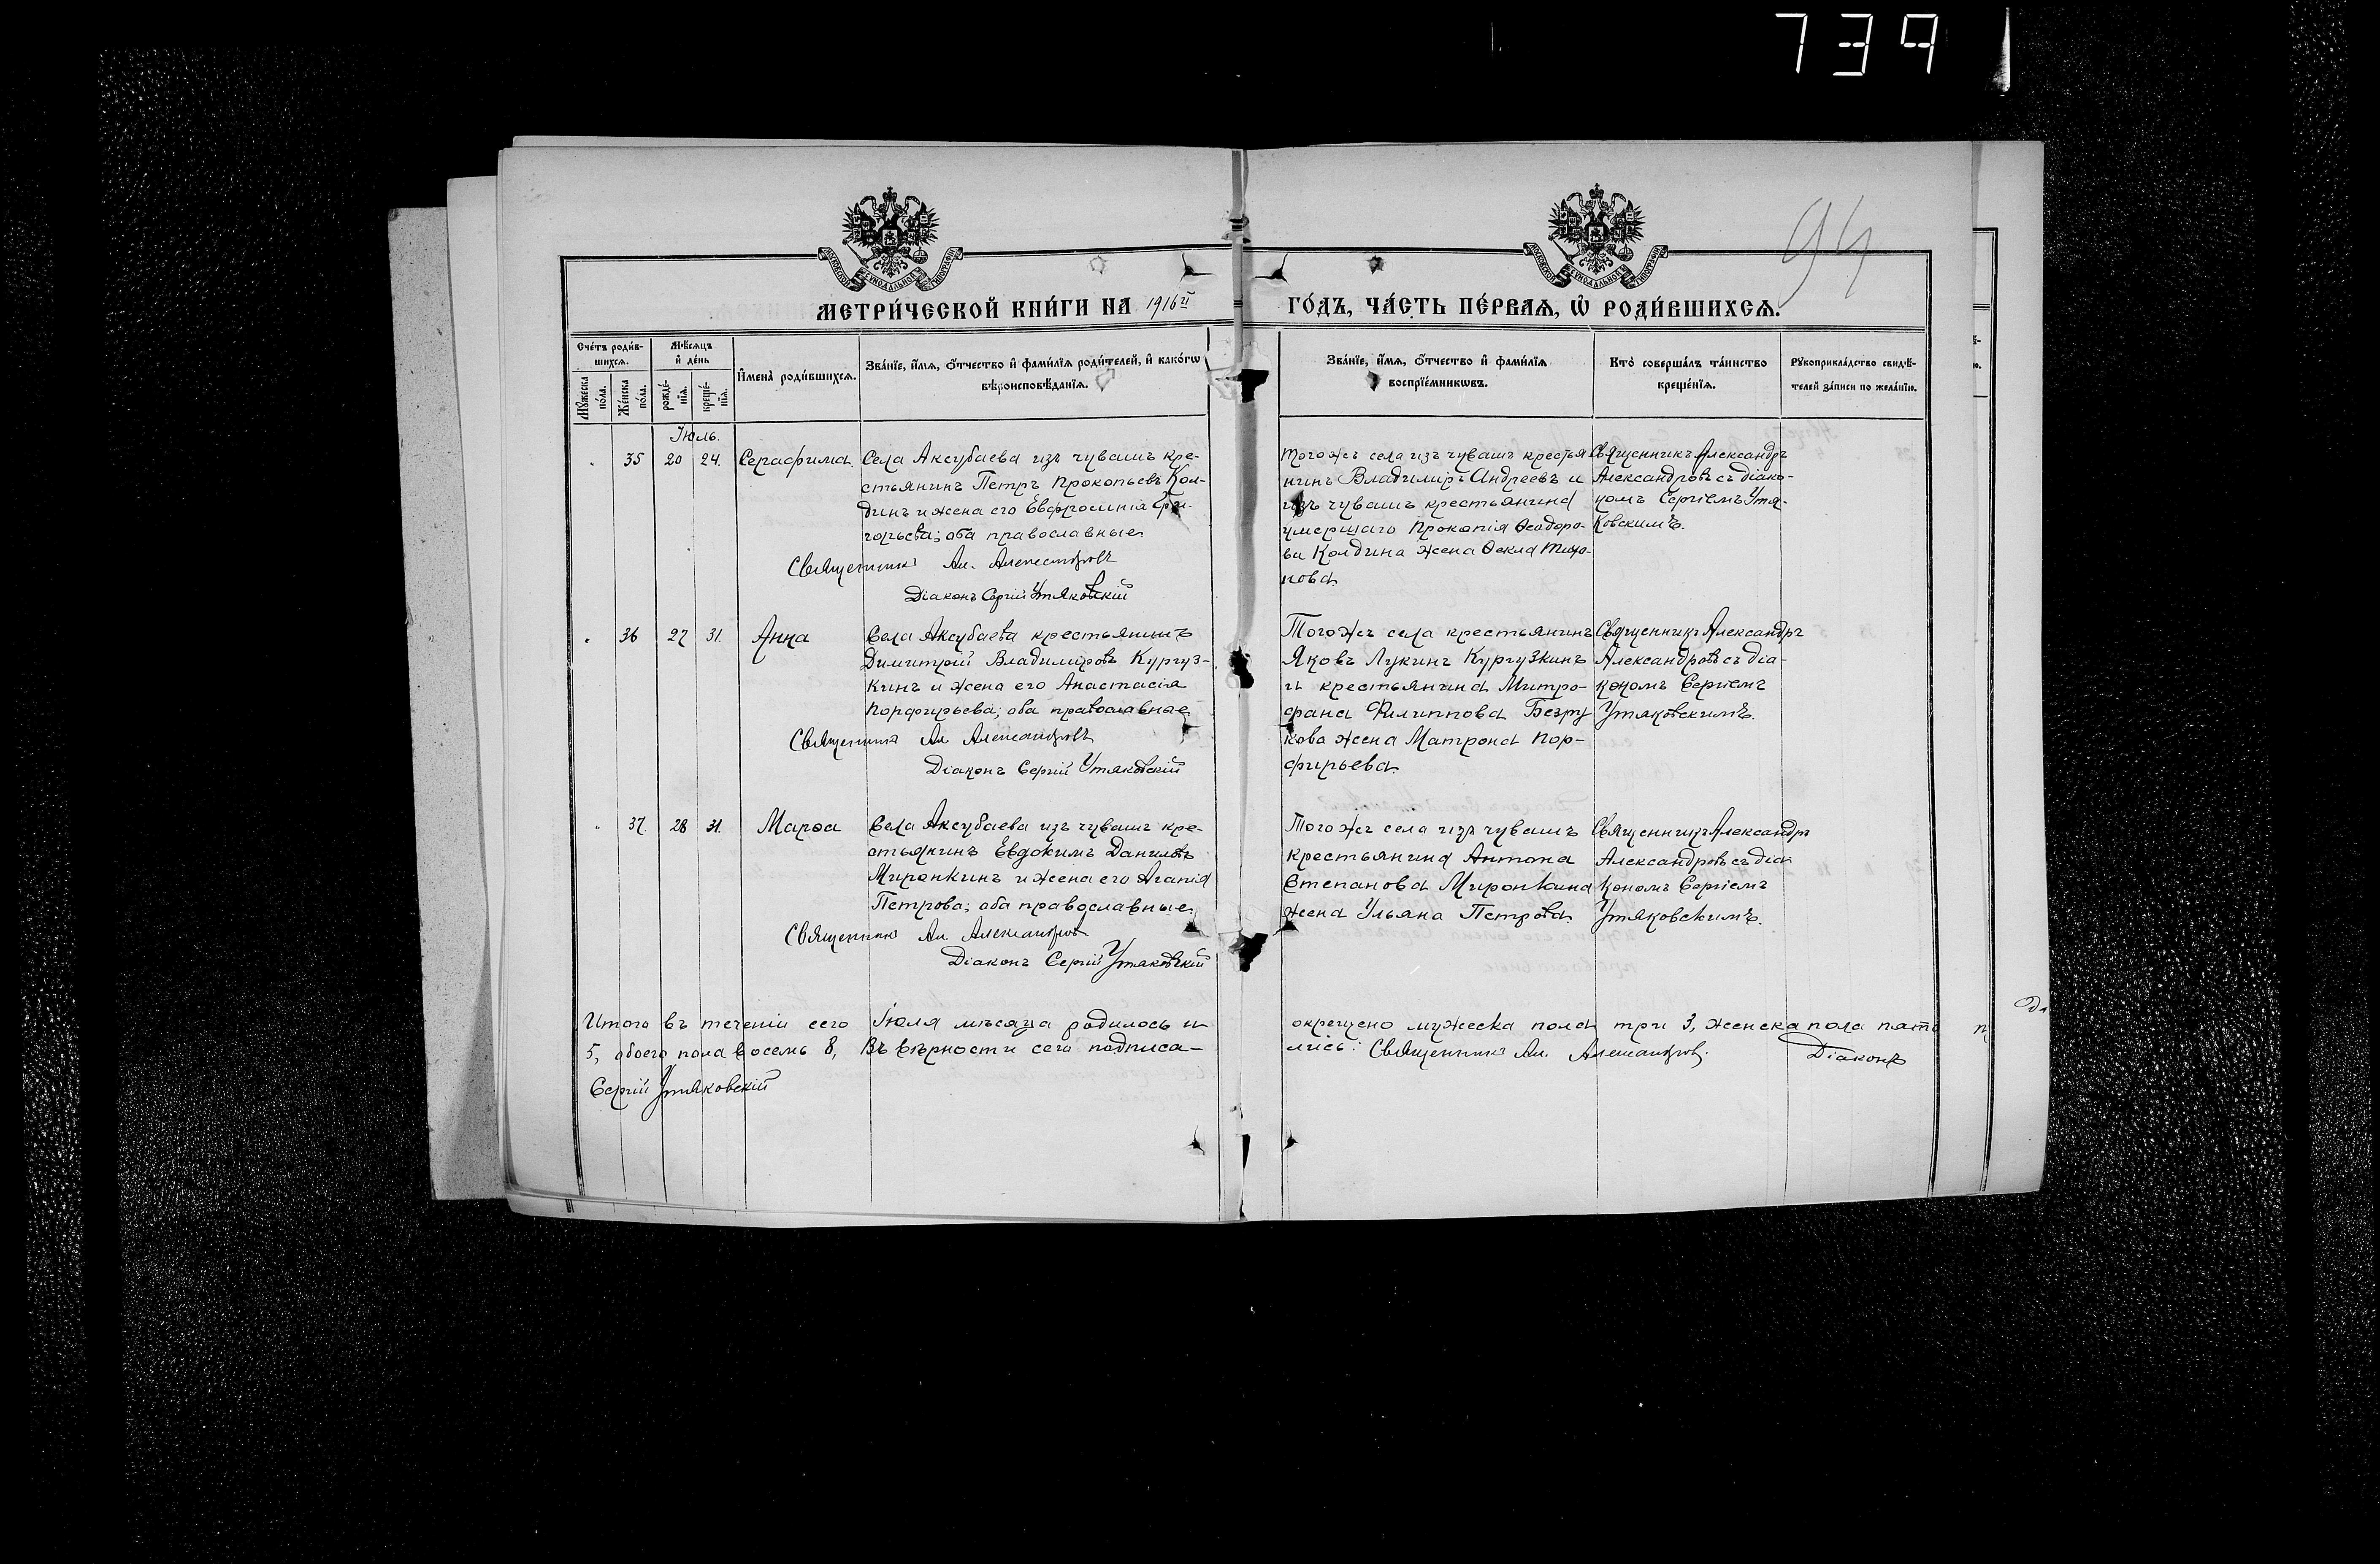 739
94
МЕТРИ́ЧЕСКОЙ КНИ́ГИ НА 1916й ГО́ДЪ, ЧА́СТЬ ПЕ́РВАЯ, Ѡ҆ РОДИ́ВШИХСЯ.
Сче́тъ роди́в-
шихся.
Мꙋ́жеска
по́ла.
Же́нска
по́ла.
Мѣ́сяцъ
и҆ де́нь
рожде́-
нїя.
креще́-
нїя.
И҆мена̀ роди́вшихся.
Зва́нїе, и҆́мя, ѻ҆́тчество и҆ фами́лїя роди́телей, и҆ како́гѡ
вѣроисповѣ́данїя.
Зва́нїе, и҆́мя, ѻ҆́тчество и҆ фами́лїя
воспрїе́мникѡвъ.
Кто̀ соверша́лъ та́инство
креще́нїя.
Рꙋкоприкла́дство свидѣ́-
телей за́писи по жела́нїю.
Іюль.
" 35 20 24. Серафима.
Села Аксубаева изъ чувашъ кре-
стьянинъ Петръ Прокопьевъ Кол-
динъ и жена его Евфросинія Гри-
горьева; оба православные
Священникъ Ал. Александровъ
Діаконъ Сергій Утяковскій
Того же села изъ чувашъ крестья
нинъ Владиміръ Андреевъ и
изъ чувашъ крестьянина
умершаго Прокопія Ѳеодоро-
ва Колдина жена Ѳекла Тихо-
нова
Священникъ Александръ
Александровъ съ діако-
номъ Сергіемъ Утя-
ковскимъ.
" 36 27 31. Анна
Села Аксубаева крестьянинъ
Димитрій Владиміровъ Кургуз-
кинъ и жена его Анастасія
Порфирьева; оба православные
Священникъ Ал Александровъ
Діаконъ Сергій Утяковскій
Того же села крестьянинъ
Яковъ Лукинъ Кургузкинъ
и крестьянина Митро-
фана Филиппова Безру
кова жена Матрона Пор-
фирьева.
Священникъ Александръ
Александровъ съ діа-
кономъ Сергіемъ
Утяковскимъ.
" 37. 28 31. Марѳа
Села Аксубаева изъ чувашъ кре-
стьянинъ Евдокимъ Даниловъ
Миронкинъ и жена его Агапія
Петрова; оба православные
Священникъ Ал Александровъ
Діаконъ Сергій Утяковскій
Того же села изъ чувашъ
крестьянина Антона
Степанова Миронкина
жена Ульяна Петрова
Священникъ Александръ
Александровъ съ діа
кономъ Сергіемъ
Утяковскимъ.
Итого въ теченіи сего Іюля мѣсяца родилось и окрещено мужеска пола три 3, женска пола пять
5, обоего пола восемь 8, Въ вѣрности сего подписа- лись: Священникъ Ал. Александровъ. Діаконъ
Сергій Утяковскій